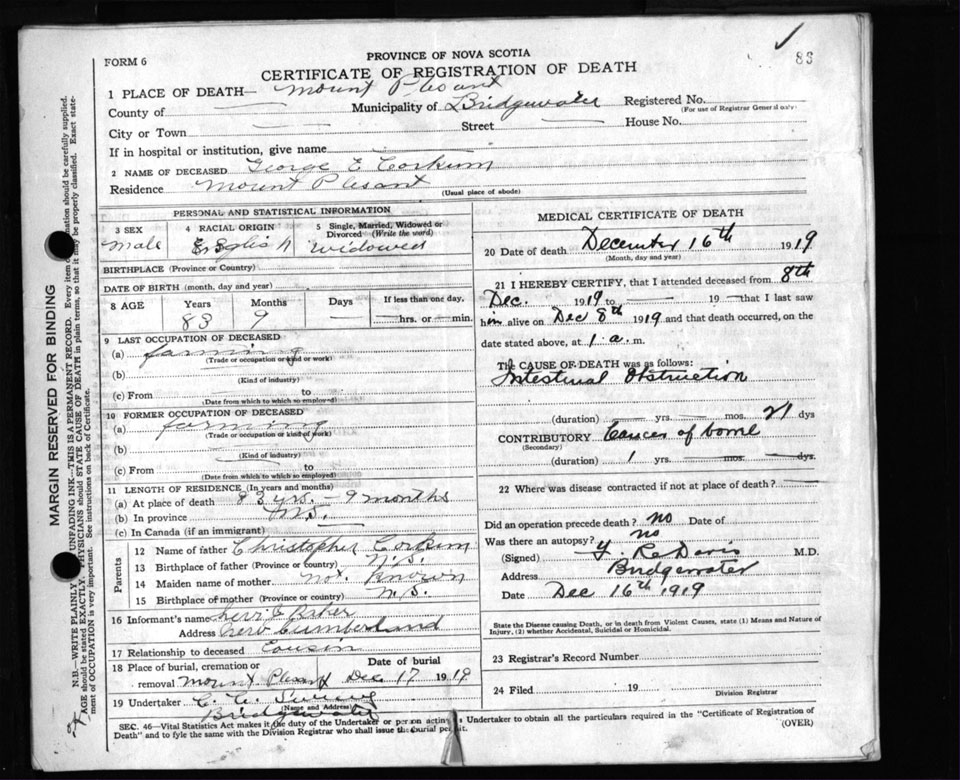 83
FORM 6
PROVINCE OF NOVA SCOTIA
CERTIFICATE OF REGISTRATION OF DEATH
1 PLACE OF DEATH— Mount Plesant
County of — Municipality of Bridgewater Registered No.
(For use of Registrar General only)
City or Town — Street — House No.
If in hospital or institution, give name —
2 NAME OF DECEASED George E Corkum
Residence Mount Plesant
(Usual place of abode)
MARGIN RESERVED FOR BINDING
PERSONAL AND STATISTICAL INFORMATION
3 SEX 4 RACIAL ORIGIN 5 Single, Married, Widowed or Divorced (Write the word)
Male English Widowed
BIRTHPLACE (Province or Country)
DATE OF BIRTH (month, day and year)
8 AGE Years Months Days If less than one day.
83 9 — — hrs. or — min.
9 LAST OCCUPATION OF DECEASED
(a) farming
(Trade or occupation or kind or work)
(b)
(Kind of industry)
(c) From — to
(Date from which to which so employed)
10 FORMER OCCUPATION OF DECEASED
(a) farming
(Trade or occupation or kind of work)
(b) —
(Kind of industry)
(c) From — to
(Date from which to which so employed)
11 LENGTH OF RESIDENCE (In years and months)
(a) At place of death 83 yrs. - 9 months
(b) In province N.S.
(c) In Canada (if an immigrant) —
Parents
12 Name of father Christopher Corkum
13 Birthplace of father (Province or country) N.S.
14 Maiden name of mother Not Known
15 Birthplace of mother (Province or country) N.S.
16 Informant's name Levi C Baker
Address New Cumberland
17 Relationship to deceased Cousin
18 Place of burial, cremation or removal Mount Plesant
Date of burial Dec 17 1919
19 Undertaker C. C.
(Name and Address)
Bridgewater
MEDICAL CERTIFICATE OF DEATH
20 Date of death December 16th 1919
(Month, day and year)
21 I HEREBY CERTIFY, that I attended deceased from 8th
Dec. 1919 to — 19 — that I last saw
him alive on Dec 8th 1919 and that death occurred, on the
date stated above, at 1. a. m.
The CAUSE OF DEATH was as follows:
Intestinal Obstruction
(duration) — yrs. — mos. 21 dys
CONTRIBUTORY Cancer of bowel
(Secondary)
(duration) 1 yrs. — mos. — dys.
22 Where was disease contracted if not at place of death? —
Did an operation precede death? no Date of
Was there an autopsy? no
(Signed) M.D.
Address Bridgewater
Date Dec 16th 1919
State the Disease causing Death, or in death from Violent Causes, state (1) Means and Nature of
Injury, (2) whether Accidental, Suicidal or Homicidal.
23 Registrar's Record Number
24 Filed 19
Division Registrar
SEC. 46—Vital Statistics Act makes it the duty of the Undertaker or person acting as Undertaker to obtain all the particulars required in the "Certificate of Registration of
Death" and to fyle the same with the Division Registrar who shall issue the burial permit.
(OVER)